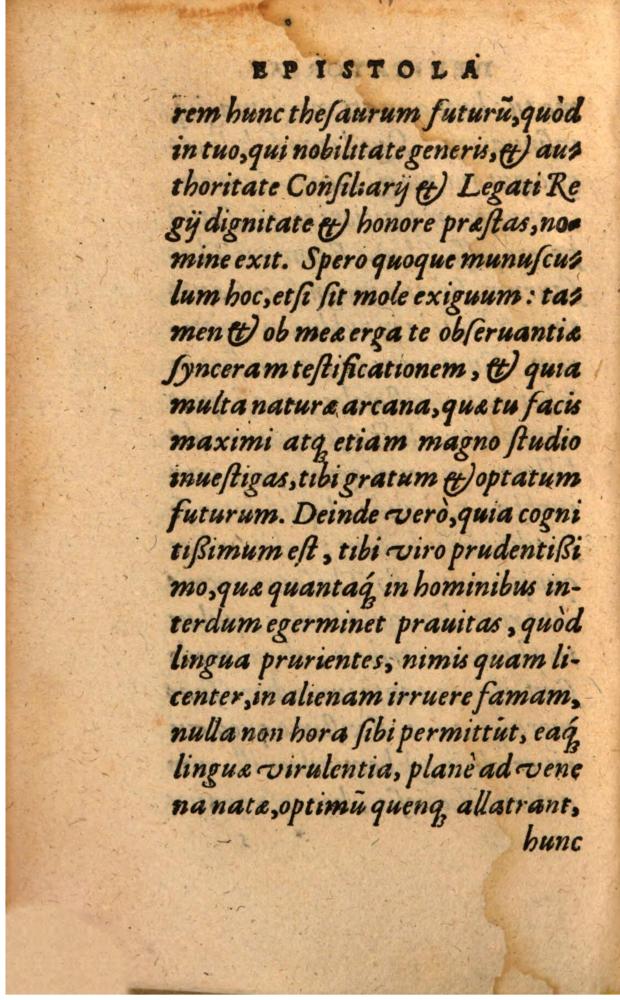 EPISTOLA
rem hunc theſaurum futurū, quòd
in tuo, qui nobilitate generis, & au⸗
thoritate Conſiliarij & Legati Re
gij dignitate & honore præſtas, no⸗
mine exit. Spero quoque munuſcu⸗
lum hoc, etſi ſit mole exiguum: ta⸗
men & ob meæ erga te obſeruantiæ
ſynceram teſtificationem, & quia
multa naturæ arcana, quæ tu facis
maximi atq; etiam magno ſtudio
inueſtigas, tibi gratum & optatum
futurum. Deinde verò, quia cogni
tißimum eſt, tibi viro prudentißi
mo, quæ quantaq́; in hominibus in-
terdum egerminet prauitas, quòd
lingua prurientes, nimis quam li-
center, in alienam irruere famam,
nulla non hora ſibi permittūt, eaq́;
linguæ virulentia, planè ad vene
na natæ, optimū quenq; allatrant,
hunc